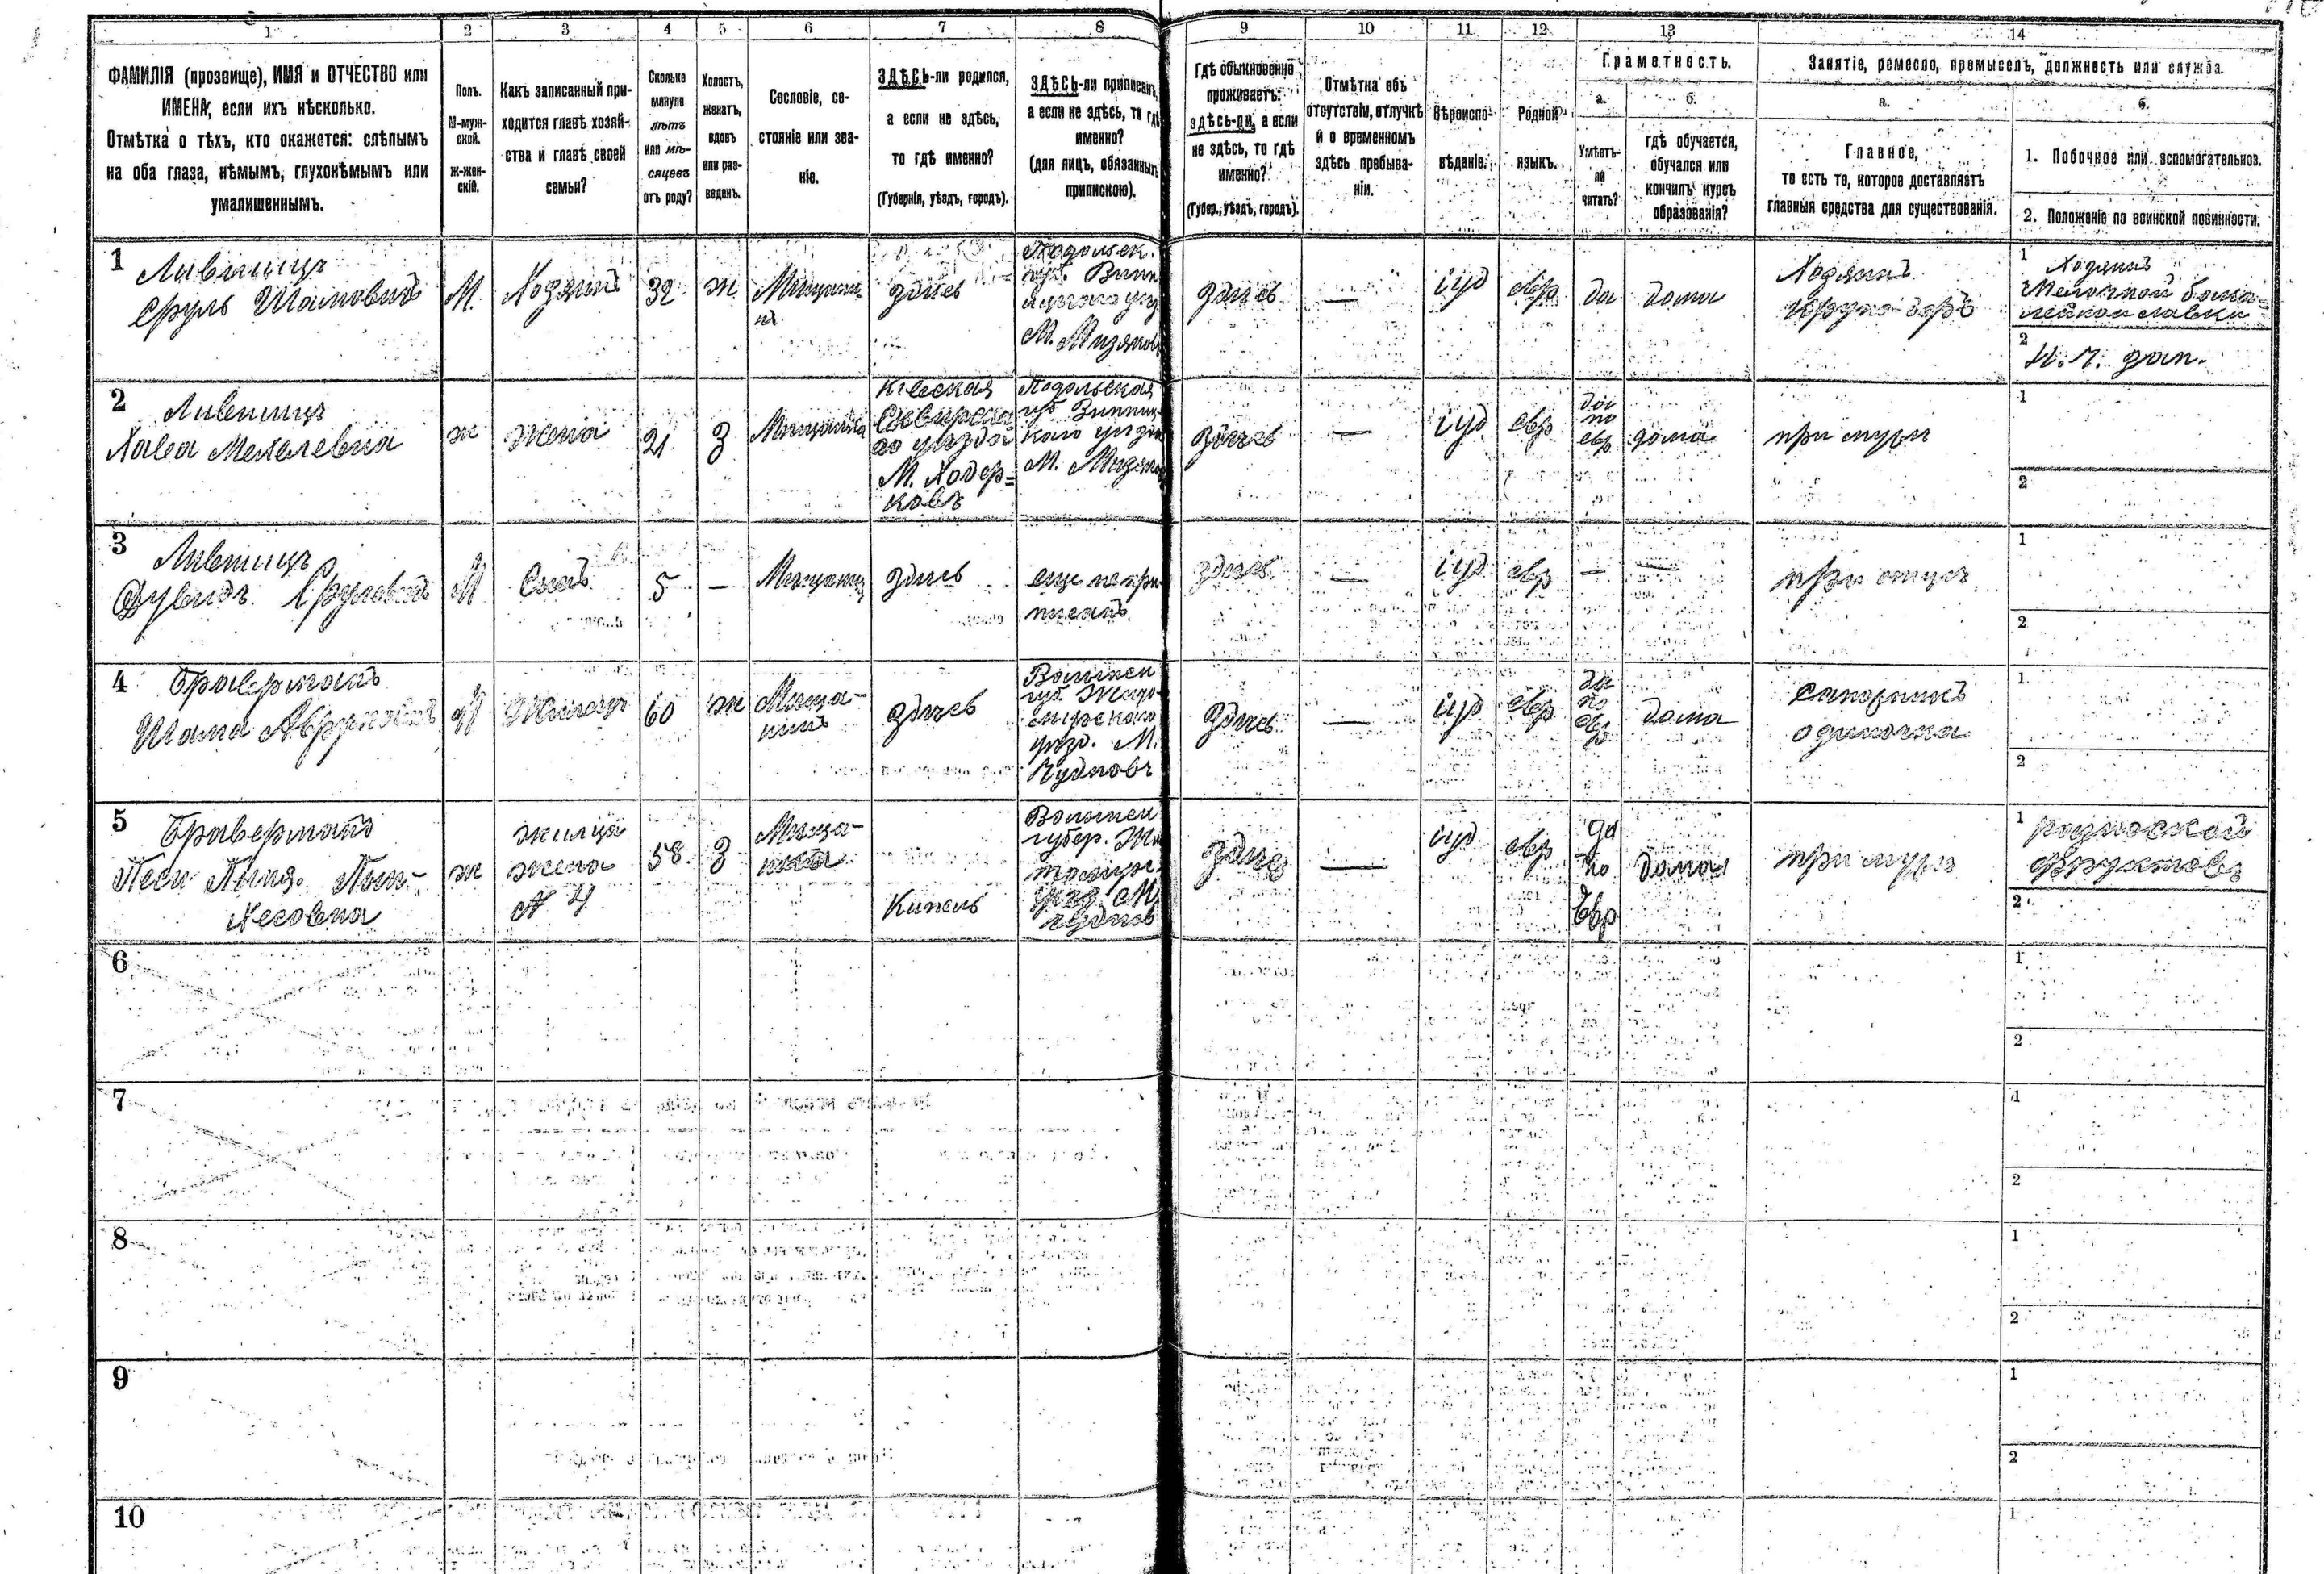 1 2 3 4 5 6 7 8 9 10 11 12 13 14
ФАМИЛІЯ (прозвище), ИМЯ и ОТЧЕСТВО или
ИМЕНА, если ихъ нѣсколько.
Отмѣтка о тѣхъ, кто окажется: слѣпымъ
на оба глаза, нѣмымъ, глухонѣмымъ или
умалишеннымъ.
Полъ.
М-муж-
ской.
ж-жен-
скій.
Какъ записанный при-
ходится главѣ хозяй-
ства и главѣ своей
семьи?
Сколько
минуло
лѣтъ
или мѣ-
сяцевъ
отъ роду?
Холостъ,
женатъ,
вдовъ
или раз-
веденъ.
Сословіе, со-
стояніе или зва-
ніе.
ЗДѢСЬ-ли родился,
а если не здѣсь,
то гдѣ именно?
(Губернія, уѣздъ, городъ).
ЗДѢСЬ-ли приписанъ,
а если не здѣсь, то гдѣ
именно?
(для лицъ, обязанныхъ
припискою).
Гдѣ обыкновенно
проживаетъ:
здѣсь-ли, а если
не здѣсь, то гдѣ
именно?
(Губер., уѣздъ, городъ).
Отмѣтка объ
отсутствіи, отлучкѣ
и о временномъ
здѣсь пребыва-
ніи.
Вѣроиспо-
вѣданіе.
Родной
языкъ.
Грамотность.
а.
Умѣетъ-
ли
читать?
б.
гдѣ обучается,
обучался или
кончилъ курсъ
образованія?
Занятіе, ремесло, промыселъ, должность или служба.
а.
Главное,
то есть то, которое доставляетъ
главныя средства для существованія.
б.
1. Побочное или вспомогательное.
2. Положеніе по воинской повинности.
1
Лившицъ
Сруль Шамовичъ
М.
Хозяинъ
32
ж
здѣсь
Подольск.
губ.
М.
здѣсь
—
іуд
евр
да
дома
Хозяинъ
1
Хозяинъ
Мелочной бака-
лейной лавки
2
зап.
2
Лившицъ
Хава Мехелевна
ж
жена
21
З
Мѣщанка
Кіевская
Сквирска
го уѣзда
М. Ходор=
ковъ
Подольская
губ Винниц
каго уѣзда
М.
здѣсь
—
іуд
евр
да
по
евр
дома
при мужѣ
1
2
3
Лившицъ
Дувидъ Срулевичъ
М
Сынъ
5
—
здѣсь
еще не при
писанъ.
здѣсь
—
іуд
евр
—
—
при отцѣ
1
2
4
Браверманъ
Шама
М
Жилецъ
60
ж
Мѣща-
нинъ
здѣсь
Волынск
губ. Жито-
мірскаго
уѣзд. М.
Чудновъ
здѣсь
—
іуд
евр
да
по
евр
дома
сапожникъ
одиночка
1
2
5
Браверманъ
Песи
ж
жилца
жена
№ 4
58
З
Мѣща-
нка
Волынск
губер. Жи
томир
уѣзд. М
здѣсь
—
іуд
евр
да
по
Евр
дома
при мужѣ
1
разноской
фруктовъ
2
6
1
2
7
1
2
8
1
2
9
1
2
10
1